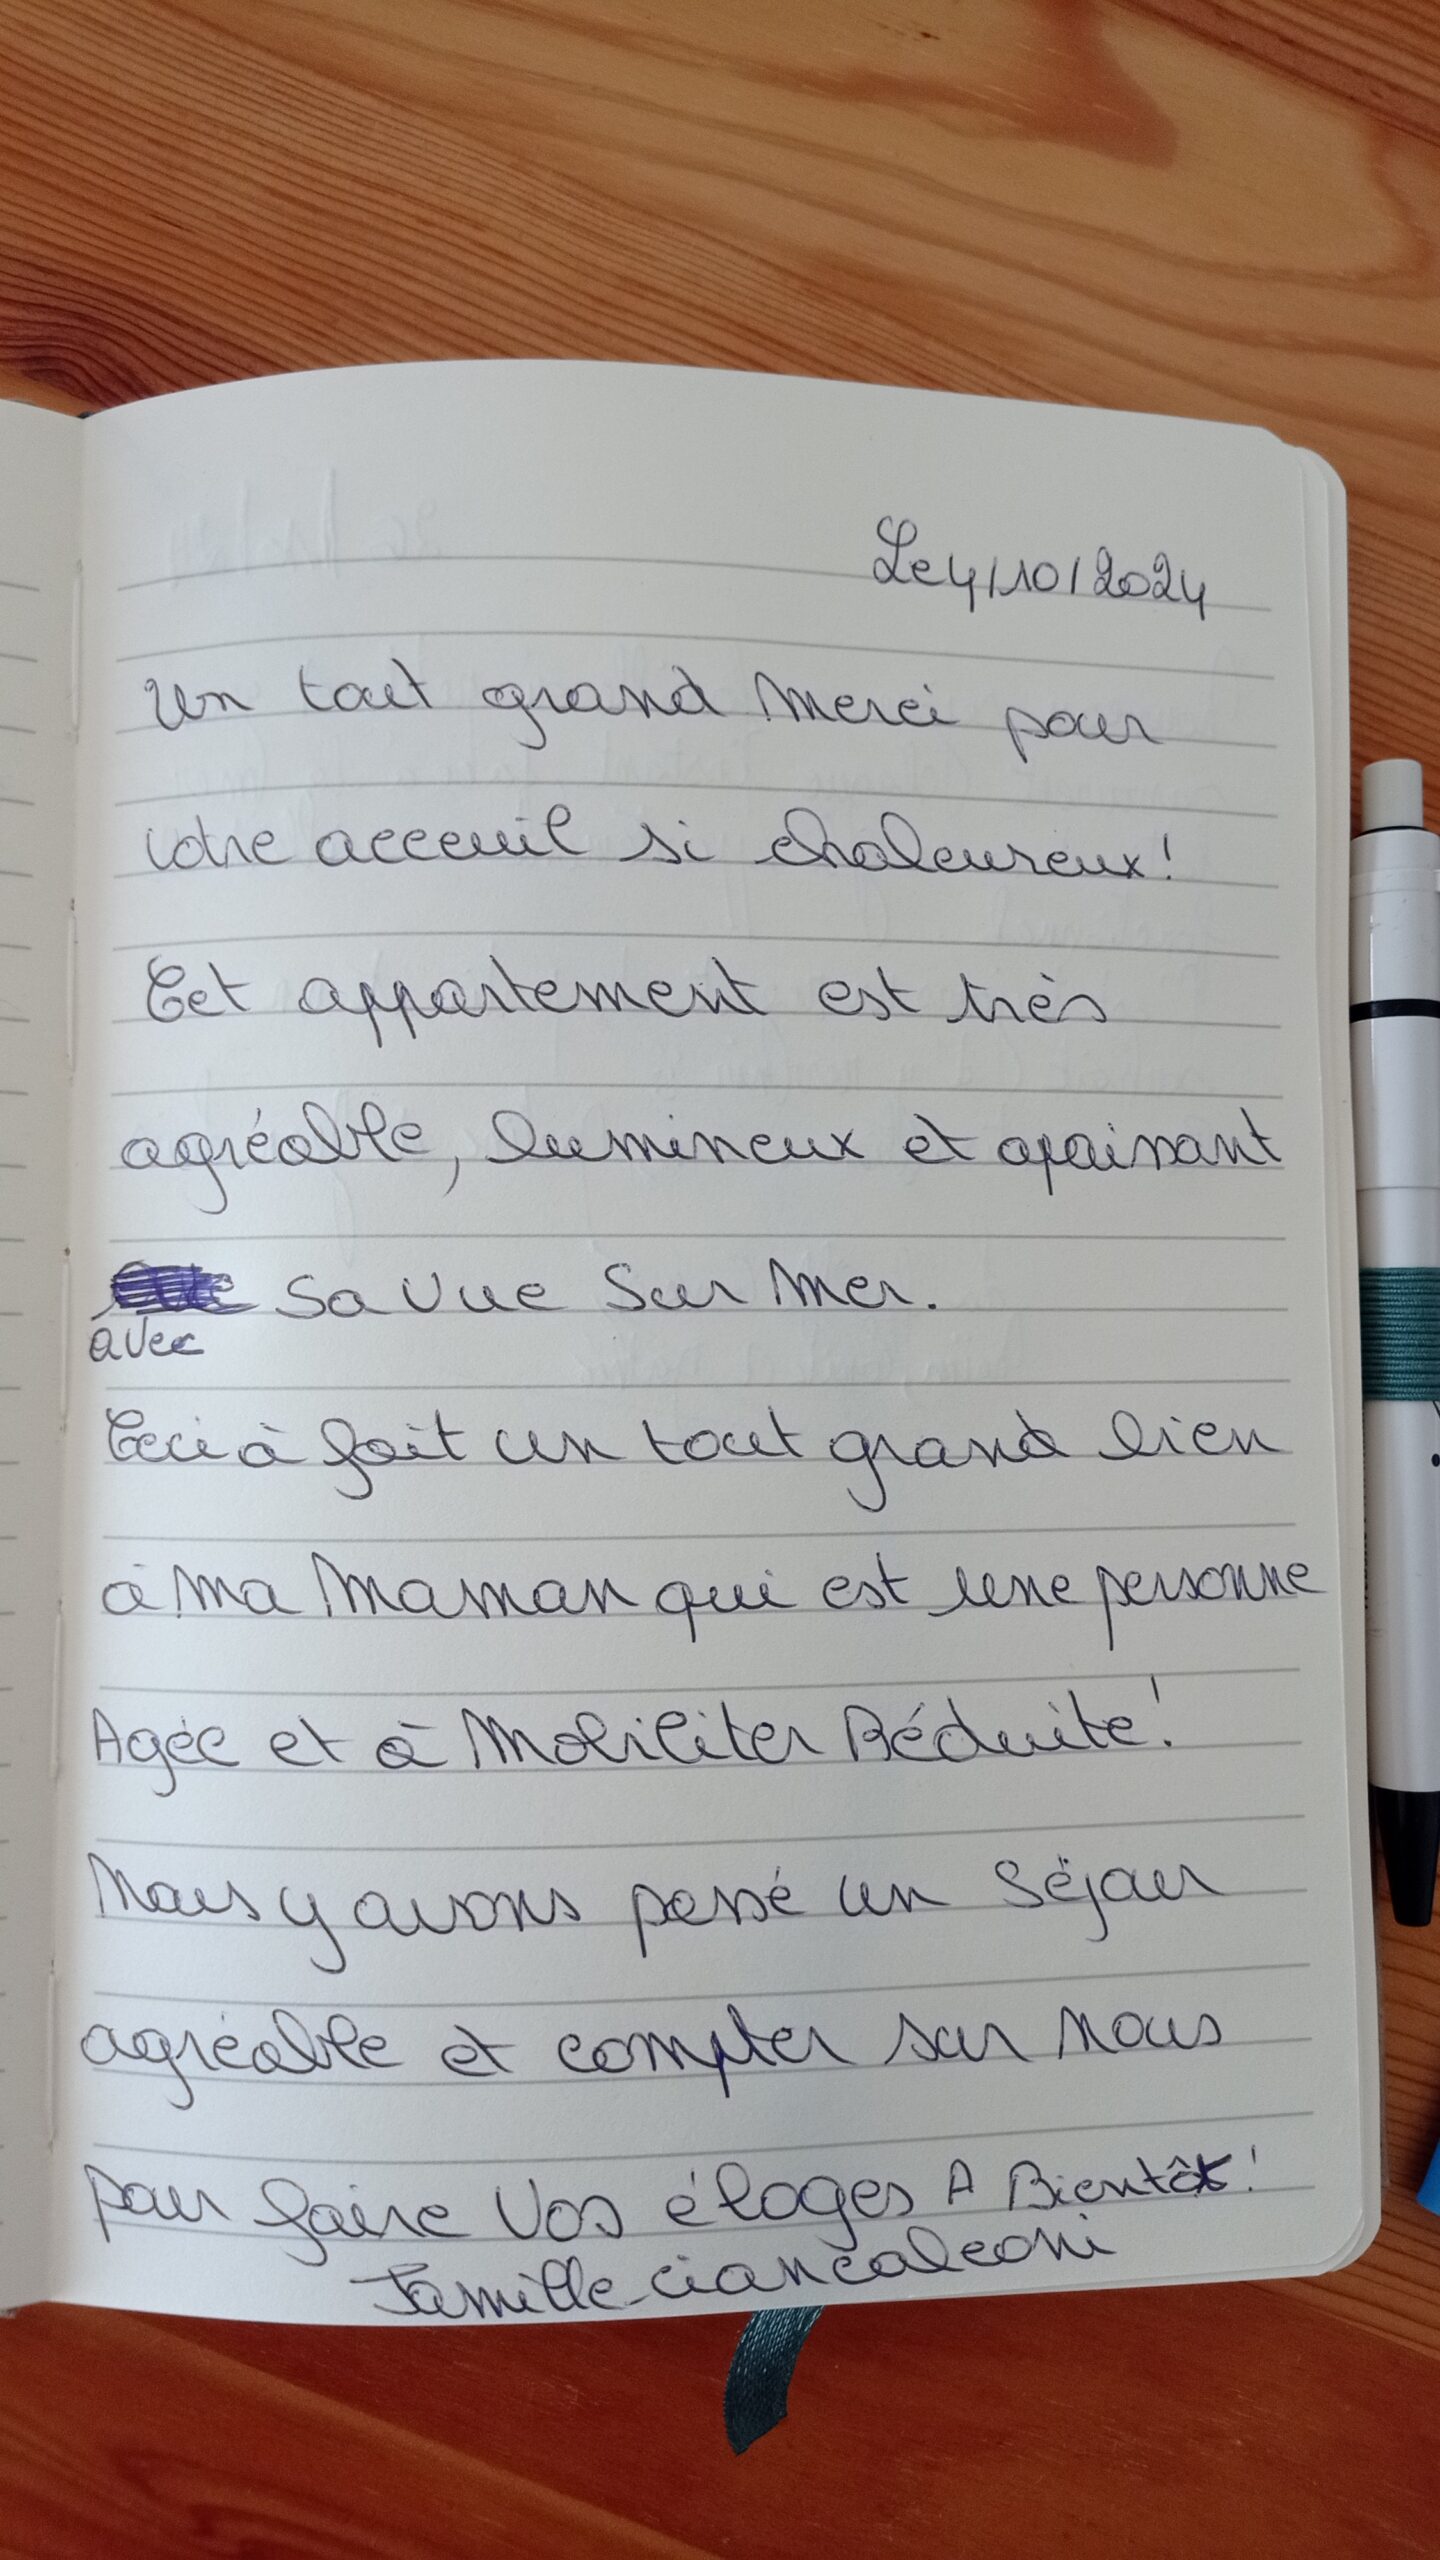 Le 4/10/2024
Un tout grand Merci pour
votre acceuil si chaleureux!
Cet appartement est très
agréable, lumineux et apaisant
avec sa vue sur Mer.
Ceci à fait un tout grand bien
à Ma Maman qui est une personne
Agée et à Mobiliter Réduite!
Nous y avons passé un Séjour
agréable et compter sur Nous
pour faire Vos éloges A Bientôt!
Famille Ciancaleoni